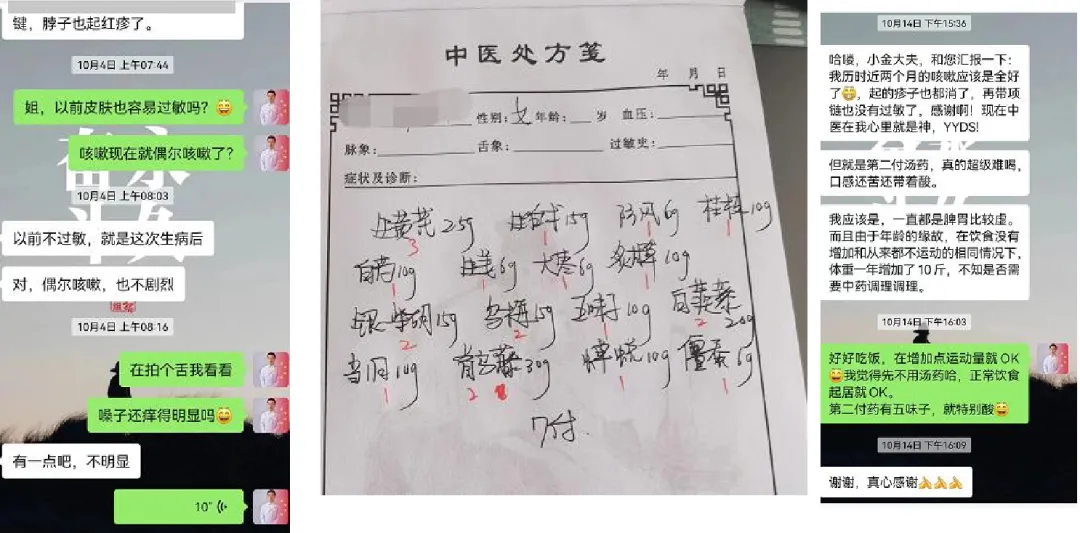 键，脖子也起红疹了。
10月4日 上午07:44
姐，以前皮肤也容易过敏吗？😅
咳嗽现在就偶尔咳嗽了？
10月4日 上午08:03
以前不过敏，就是这次生病后
对，偶尔咳嗽，也不剧烈
10月4日 上午08:16
在拍个舌我看看
嗓子还痒得明显吗😅
有一点吧，不明显
10"
中医处方笺
年 月 日
性别: 女 年龄: 岁 血压:
脉象: 舌象: 过敏史:
症状及诊断:
生黄芪25g 生白术15g 防风6g 桂枝10g
3 1 1 1
白芍10g 生姜6g 大枣6g 炙甘草10g
1 1 1 1
银柴胡15g 乌梅15g 五味子10g 白蒺藜20g
2 2 1 2
当归10g 首乌藤30g 蝉蜕10g 僵蚕6g
1 2 1 1
7付.
10月14日 下午15:36
哈喽，小金大夫，和您汇报一下：
我历时近两个月的咳嗽应该是全好
了😄，起的疹子也都消了，再带项
链也没有过敏了，感谢啊！现在中
医在我心里就是神，YYDS!
但就是第二付汤药，真的超级难喝，
口感还苦还带着酸。
我应该是，一直都是脾胃比较虚。
而且由于年龄的缘故，在饮食没有
增加和从来都不运动的相同情况下，
体重一年增加了10斤，不知是否需
要中药调理调理。
10月14日 下午16:03
好好吃饭，在增加点运动量就OK
😅我觉得先不用汤药哈，正常饮食
起居就OK。
第二付药有五味子，就特别酸😅
10月14日 下午16:09
谢谢，真心感谢🙏🙏🙏